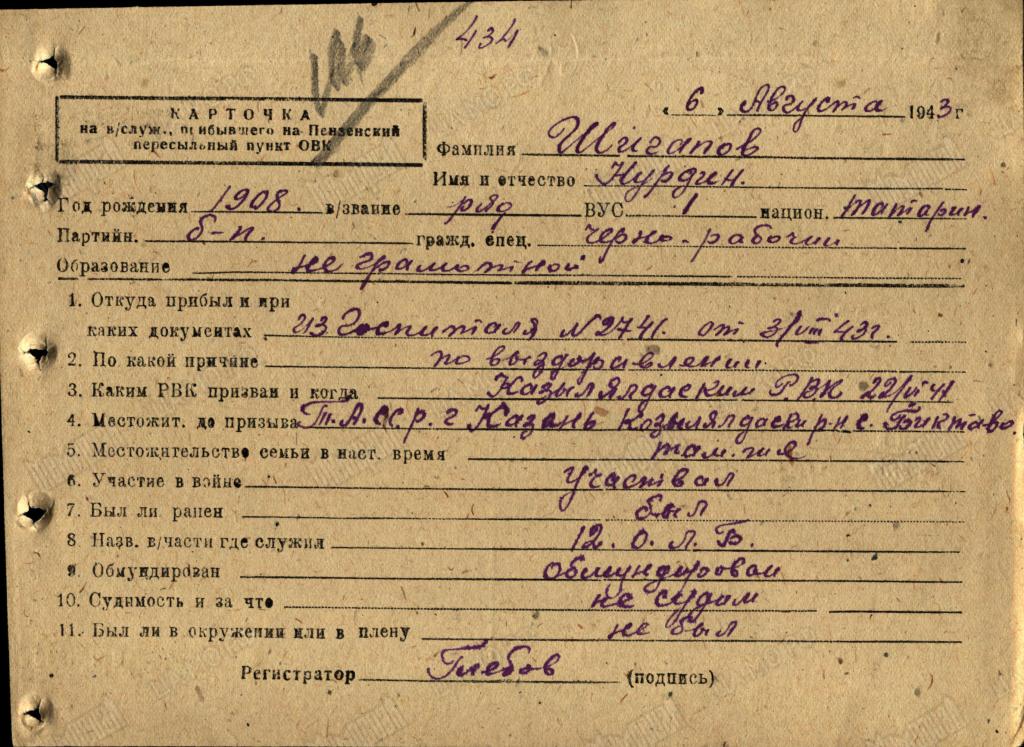 434
КАРТОЧКА
на в/служ., прибывшего на Пензенский
пересыльный пункт ОВК
„ 6 „ Августа 1943 г
Фамилия Шигапов
Имя и отчество Нурдин.
Год рождения 1908. в/звание ряд ВУС 1 национ. татарин.
Партийн. б-п. гражд. спец. черно-рабочий
Образование не грамотной
1. Откуда прибыл и при
каких документах из Госпиталя №2741. от 3/VIII 43г.
2. По какой причине по выздоравлении
3. Каким РВК призван и когда Казылялдаским Р.ВК 22/VI 41
4. Местожит. до призыва Т.А.ССР. г Казань Козылялдаски р-н с. Биктаво.
5. Местожительство семьи в наст. время там-же
6. Участие в войне Участвал
7. Был ли ранен был
8. Назв. в/части где служил 12. О. Л. Б.
9. Обмундирован Обмундирован
10. Судимость и за что не судим
11. Был ли в окружении или в плену не был
Регистратор Глебов (подпись)